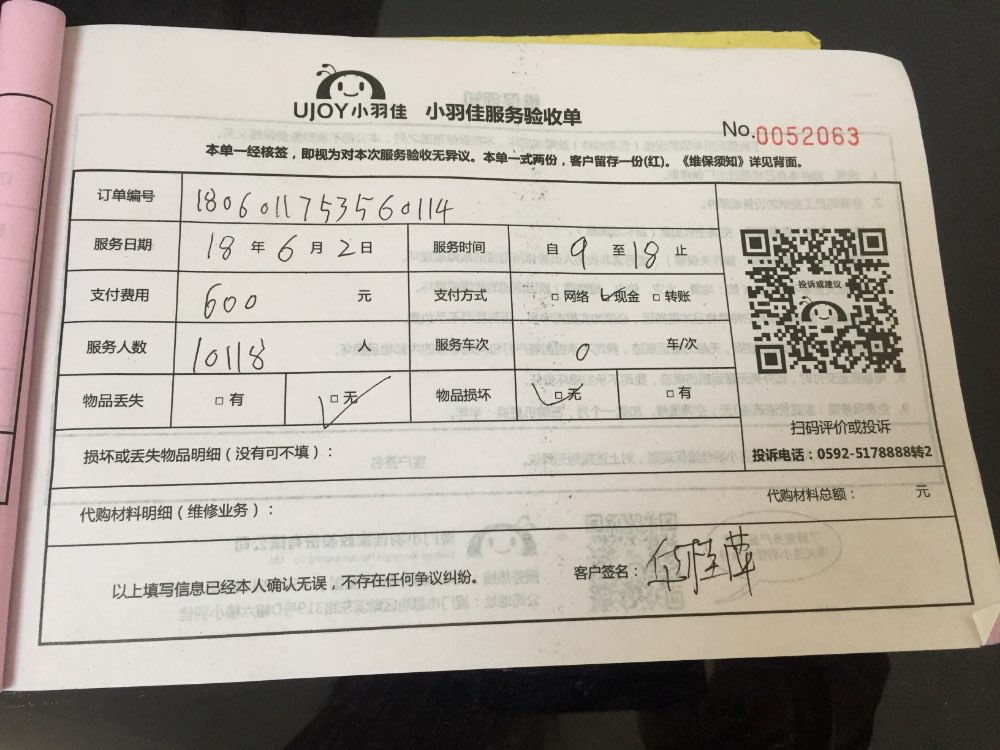 UJOY小羽佳 小羽佳服务验收单
No.0052063
本单一经核签，即视为对本次服务验收无异议。本单一式两份，客户留存一份(红)。《维保须知》详见背面。
订单编号 1806011753560114
服务日期 18 年 6 月 2 日 服务时间 自 9 至 18 止
支付费用 600 元 支付方式 □ 网络 □ 现金 □ 转账
服务人数 10118 人 服务车次 0 车/次
物品丢失 □ 有 □ 无 物品损坏 □ 无 □ 有
投诉或建议
扫码评价或投诉
投诉电话：0592-5178888转2
损坏或丢失物品明细（没有可不填）：
代购材料明细（维修业务）：
代购材料总额： 元
以上填写信息已经本人确认无误，不存在任何争议纠纷。
客户签名：